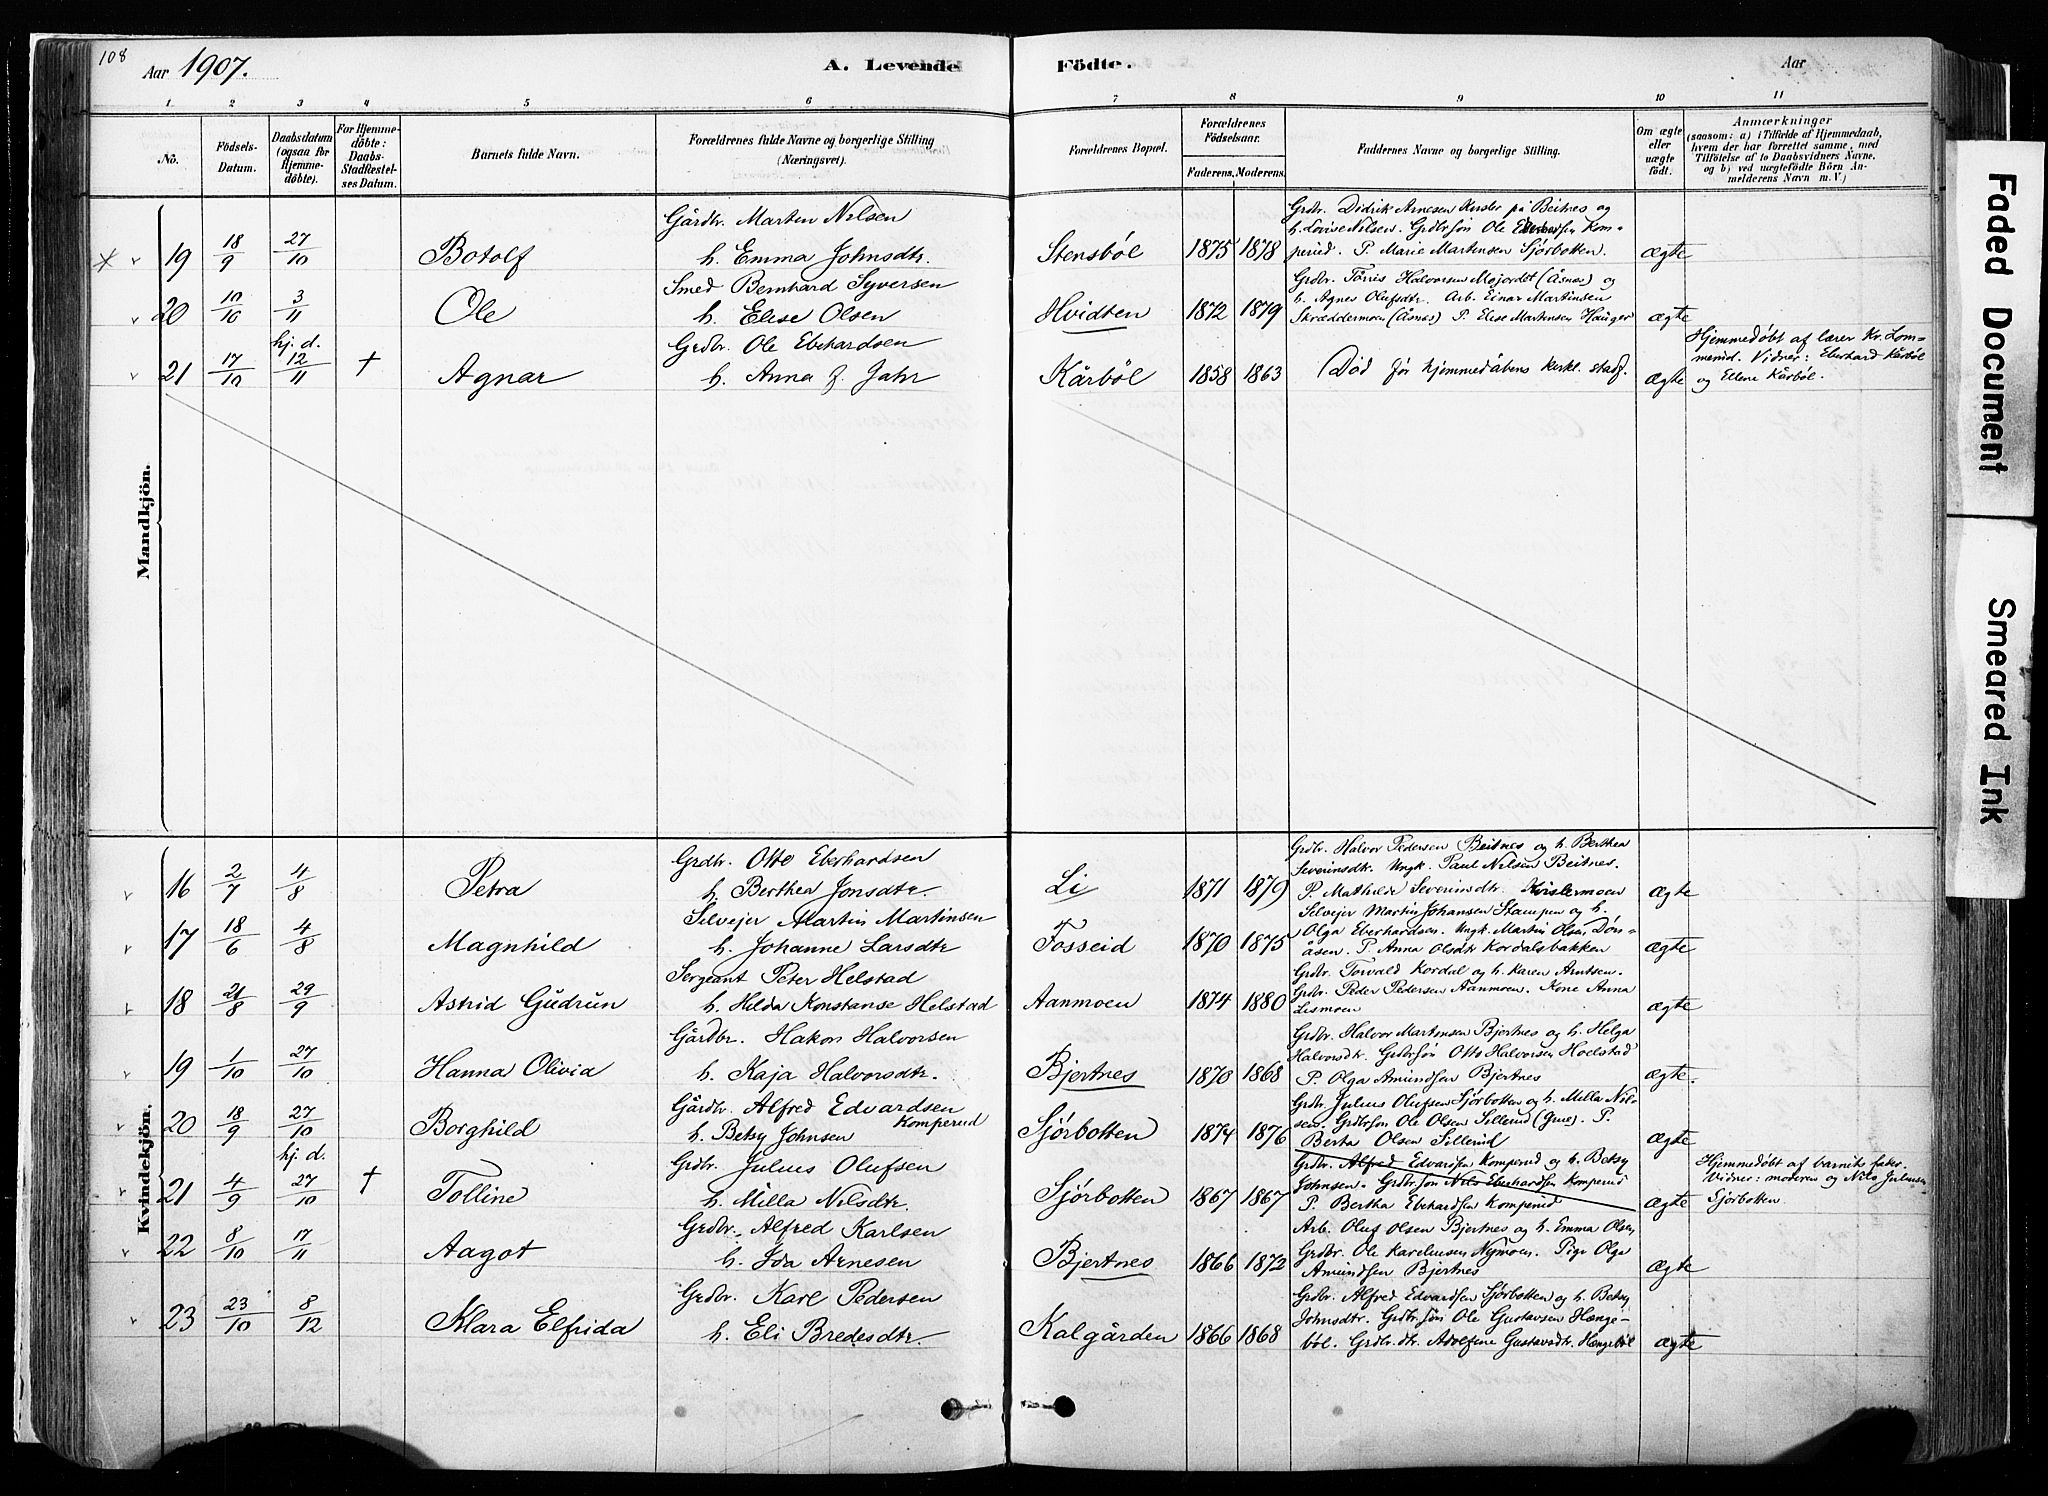 108
Aar 1907.
A. Levende Födte.
Aar
1 2 3 4 5 6 7 8 9 10 11
No.
Födsels-Datum.
Daabsdatum (ogsaa for Hjemme-döbte).
For Hjemme-döbte: Daabs-Stadfæstelses Datum.
Barnets fulde Navn.
Forældrenes fulde Navne og borgerlige Stilling (Næringsvei).
Forældrenes Bopæl.
Forældrenes Födselsaar.
Faderens. Moderens.
Faddernes Navne og borgerlige Stilling.
Om ægte eller uægte födt.
Anmærkninger
(saasom: a) i Tilfælde af Hjemmedaab,
hvem der har forrettet samme, med
Tilföielse af to Daabsvidners Navne,
og b) ved uægtefödte Börn An-
melderens Navn m. V.)
Mandkjön.
19 18/9 27/10 Botolf
Gårdbr. Marten Nilsen
h. Emma Johnsdtr.
Stensböl 1875 1878
Grdbr. Didrik Arnesen Kusler på Beitnes og
h. Lovise Nilsen. Grdbrsøn Ole Kom-
perud. P. Marie Martinsen Sjørbotten.
ægte
20 10/10 3/11 Ole
Smed Bernhard Syversen
h. Elise Olsen
Hvidten 1872 1879
Grdbr. Törris Halvorsen Mojordet (Åsnæs) og
h. Agnes Olufsdtr. Arb. Einar Martinsen
Skræddermoen (Åsnæs) P. Elise Martinsen Hauger
ægte
21 17/10 hj. d. 12/11 † Agnar
Grdbr. Ole Eberhardsen
h. Anna J. Jahr
Kårböl 1858 1863
Död før hjemmedåbens kirkl. stadf.
ægte
Hjemmedøbt af lærer Kr. Lom-
merud. Vidner: Eberhard Kårböl
og Ellene Kårböl.
Kvindekjön.
16 2/7 4/8 Petra
Grdbr. Otto Eberhardsen
h. Berthea Jonsdtr.
Li 1871 1879
Grdbr. Halvor Pedersen Beitnes og h. Berthea
Severinsdtr. Ungk. Paul Nilsen Beitnes.
P. Mathilde Severinsdtr. Kvislermoen
ægte
17 18/6 4/8 Magnhild
Selvejer Martin Martinsen
h. Johanne Larsdtr
Fosseid 1870 1875
Selvejer Martin Johansen Stampen og h.
Olga Eberhardsen. Ungk. Martin Olsen Døn-
åsen. P. Anna Olsdtr Kordalsbakken
ægte
18 21/8 29/9 Astrid Gudrun
Sergeant Peter Helstad
h. Hilda Konstanse Helstad
Aanmoen 1874 1880
Grdbr. Torvald Kordal og h. Karen Arntsen.
Grdbr. Peder Pedersen Aanmoen. Kone Anna
Lismoen
ægte
19 1/10 27/10 Hanna Olivia
Gårdbr. Hakon Halvorsen
h. Kaja Halvorsdtr.
Bjertnes 1870 1868
Grdbr. Halvor Martinsen Bjertnes og h. Helga
Halvorsdtr. Grdbrsøn Otto Halvorsen Hoelstad
P. Olga Amundsen Bjertnes
ægte.
20 18/9 27/10 Borghild
Gårdbr. Alfred Edvardsen
Komperud
h. Betsy Johnsen
Sjörbotten 1874 1876
Grdbr. Julius Olufsen Sjørbotten og h. Milla Nil-
sen. Grdbrsøn Ole Olsen Sillerud (Grue). P.
Berta Olsen Sillerud
ægte
21 4/9 hj. d. 27/10 † Tolline
Grdbr. Julius Olufsen
h. Milla Nilsdtr.
Sjörbotten 1867 1867
Grdbr. Alfred Edvardsen Komperud og h. Betsy
Johnsen. Grdbrsøn Nils Eberhardsen Komperud
P. Bertha Eberhardsen Komperud
ægte
Hjemmedøbt af barnets fader.
Vidner: moderen og Nils Julius
Sjørbotten.
22 8/10 17/11 Aagot
Grdbr. Alfred Karlsen
h. Ida Arnesen
Bjertnes 1866 1872
Arb. Oluf Olsen Bjertnes og h. Emma Olsen,
Grdbr. Ole Karelusen Nymoen. Pige Olga
Amundsen Bjertnes
ægte
23 23/10 8/12 Klara Elfrida
Grdbr. Karl Pedersen
h. Eli Bredesdtr.
Kalgården 1866 1868
Grdbr. Alfred Edvardsen Sjørbotten og h. Betsy
Johnsdtr. Grdbrsøn Ole Gustavsen Hænge-
böl. Grdbr.dtr. Adolfine Gustavsdtr. Hængeböl
ægte
Faded Document
Smeared Ink